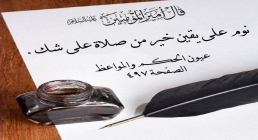 قال أمير المؤمنين عليه السلام
نوم على يقين خير من صلاة على شك.
عيون الحكم والمواعظ
الصفحة ٤٩٧